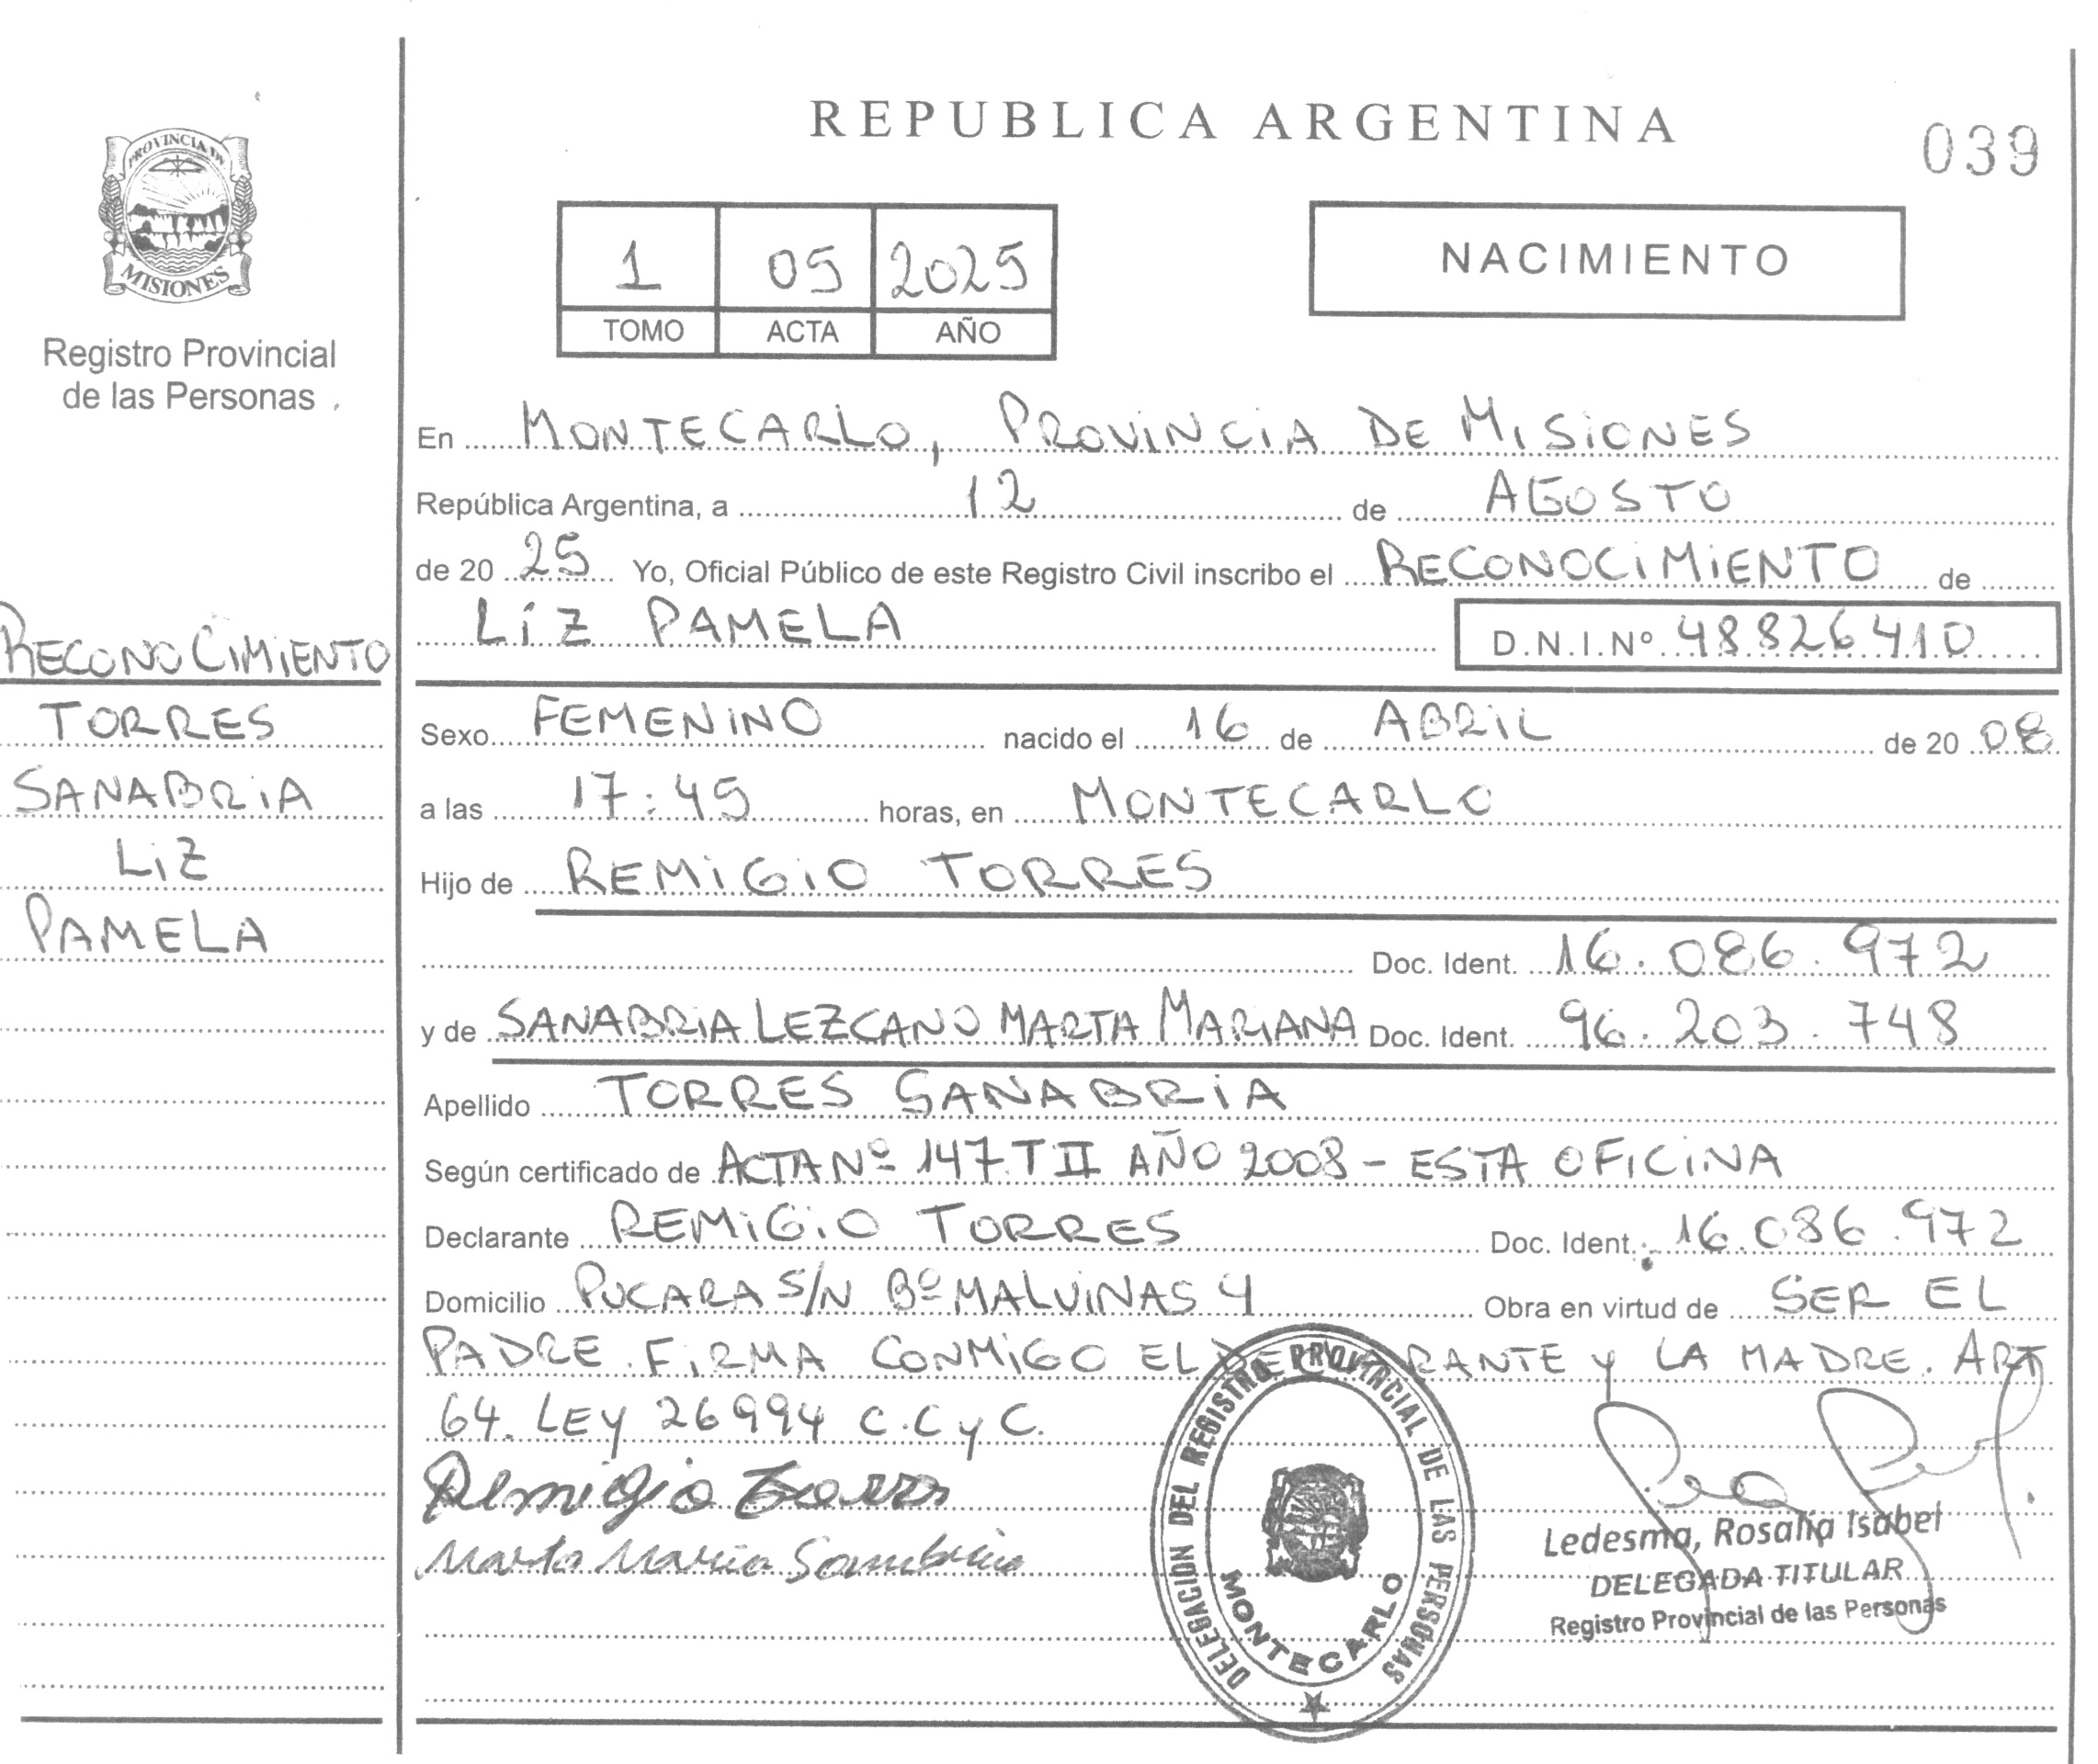 PROVINCIA DE
MISIONES
Registro Provincial
de las Personas
RECONOCIMIENTO
TORRES
SANABRIA
LIZ
PAMELA
REPUBLICA ARGENTINA
039
1 05 2025
TOMO ACTA AÑO
NACIMIENTO
En MONTECARLO, PROVINCIA DE MISIONES
República Argentina, a 12 de AGOSTO
de 20 25 Yo, Oficial Público de este Registro Civil inscribo el RECONOCIMIENTO de
LIZ PAMELA D.N.I.Nº 48826410
Sexo FEMENINO nacido el 16 de ABRIL de 20 08
a las 17:45 horas, en MONTECARLO
Hijo de REMIGIO TORRES
Doc. Ident. 16.086.972
y de SANABRIA LEZCANO MARTA MARIANA Doc. Ident. 96.203.748
Apellido TORRES SANABRIA
Según certificado de ACTA Nº 147 T II AÑO 2008 - ESTA OFICINA
Declarante REMIGIO TORRES Doc. Ident. 16.086.972
Domicilio PUCARA S/N Bº MALVINAS 4 Obra en virtud de SER EL
PADRE. FIRMA CONMIGO EL DECLARANTE y LA MADRE. ART
64. LEY 26994 C.C y C.
Remigio Torres
Marta Maria Sanabria
DELEGACION DEL REGISTRO PROVINCIAL DE LAS PERSONAS
MONTECARLO
Ledesma, Rosalia Isabel
DELEGADA TITULAR
Registro Provincial de las Personas